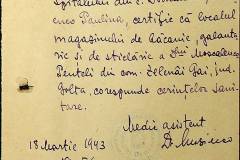 Spitalului din c. 
enco Paulina, certifică că localul
magazinului de băcănie, galante-
rie și de sticlărie a D-nei Moscalenco
Penteli din com. Zelenăi Gai, jud.
Golta, corespunde cerințelor sani-
tare.
Medic asistent
18 Martie 1943